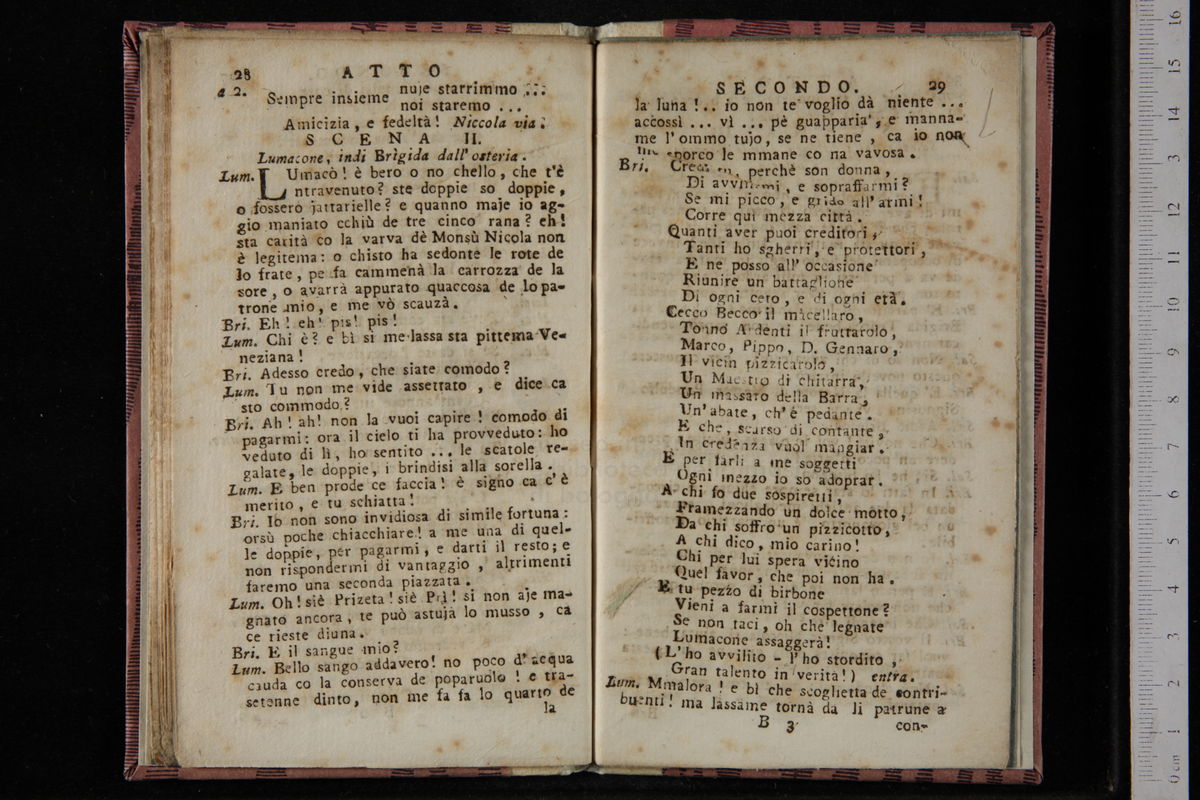 28 ATTO
a 2. Sempre insieme nuje starrimmo ...
noi staremo ...
Amicizia, e fedeltà! Niccola via.
SCENA II.
Lumacone, indi Brìgida dall' osteria.
Lum. LUmacò! è bero o no chello, che t'è
ntravenuto? ste doppie so doppie,
o fossero jattarielle? e quanno maje io ag-
gio maniato cchiù de tre cinco rana? eh!
sta carità co la varva dè Monsù Nicola non
è legitema: o chisto ha sedonte le rote de
lo frate, pe fa cammenà la carrozza de la
sore, o avarrà appurato quaccosa de lo pa-
trone mio, e me vò scauzà.
Bri. Eh! eh! pis! pis!
Lum. Chi è? e bì si me lassa sta pittema Ve-
neziana!
Bri. Adesso credo, che siate comodo?
Lum. Tu non me vide assettato, e dice ca
sto commodo?
Bri. Ah! ah! non la vuoi capire! comodo di
pagarmi: ora il cielo ti ha provveduto: ho
veduto di lì, ho sentito ... le scatole re-
galate, le doppie, i brindisi alla sorella.
Lum. E ben prode ce faccia! è signo ca c'è
merito, e tu schiatta!
Bri. Io non sono invidiosa di simile fortuna:
orsù poche chiacchiare! a me una di quel-
le doppie, per pagarmi, e darti il resto; e
non rispondermi di vantaggio, altrimenti
faremo una seconda piazzata.
Lum. Oh! siè Prizeta! siè Prì! si non aje ma-
gnato ancora, te può astuja lo musso, ca
ce rieste diuna.
Bri. E il sangue mio?
Lum. Bello sango addavero! no poco d' acqua
cauda co la conserva de poparuolo! e tra-
setenne dinto, non me fa fa lo quarto de
la
SECONDO. 29
la luna!.. io non te voglio dà niente ...
accossì ... vì ... pè guapparia, e manna-
me l' ommo tujo, se ne tiene, ca io non
me sporco le mmane co na vavosa.
Bri. Credi tu, perchè son donna,
Di avvilirmi, e sopraffarmi?
Se mi picco, e grido all' armi!
Corre quì mezza città.
Quanti aver puoi creditori,
Tanti ho sgherri, e protettori,
E ne posso all' occasione
Riunire un battaglione
Di ogni ceto, e di ogni età.
Cecco Becco il macellaro,
Tonno Ardenti il fruttarolo,
Marco, Pippo, D. Gennaro,
Il vicin pizzicarolo,
Un Maestro di chitarra,
Un massaro della Barra,
Un' abate, ch' é pedante.
E che, scarso di contante,
In credenza vuol mangiar.
E per farli a me soggetti
Ogni mezzo io so adoprar.
A chi fo due sospiretti,
Framezzando un dolce motto,
Da chi soffro un pizzicotto,
A chi dico, mio carino!
Chi per lui spera vicino
Quel favor, che poi non ha.
E tu pezzo di birbone
Vieni a farmi il cospettone?
Se non taci, oh che legnate
Lumacone assaggerà!
(L' ho avvilito - l' ho stordito,
Gran talento in verità!) entra.
Lum. Mmalora! e bì che scoglietta de contri-
buenti! ma lassame tornà da li patrune a
B 3 con-